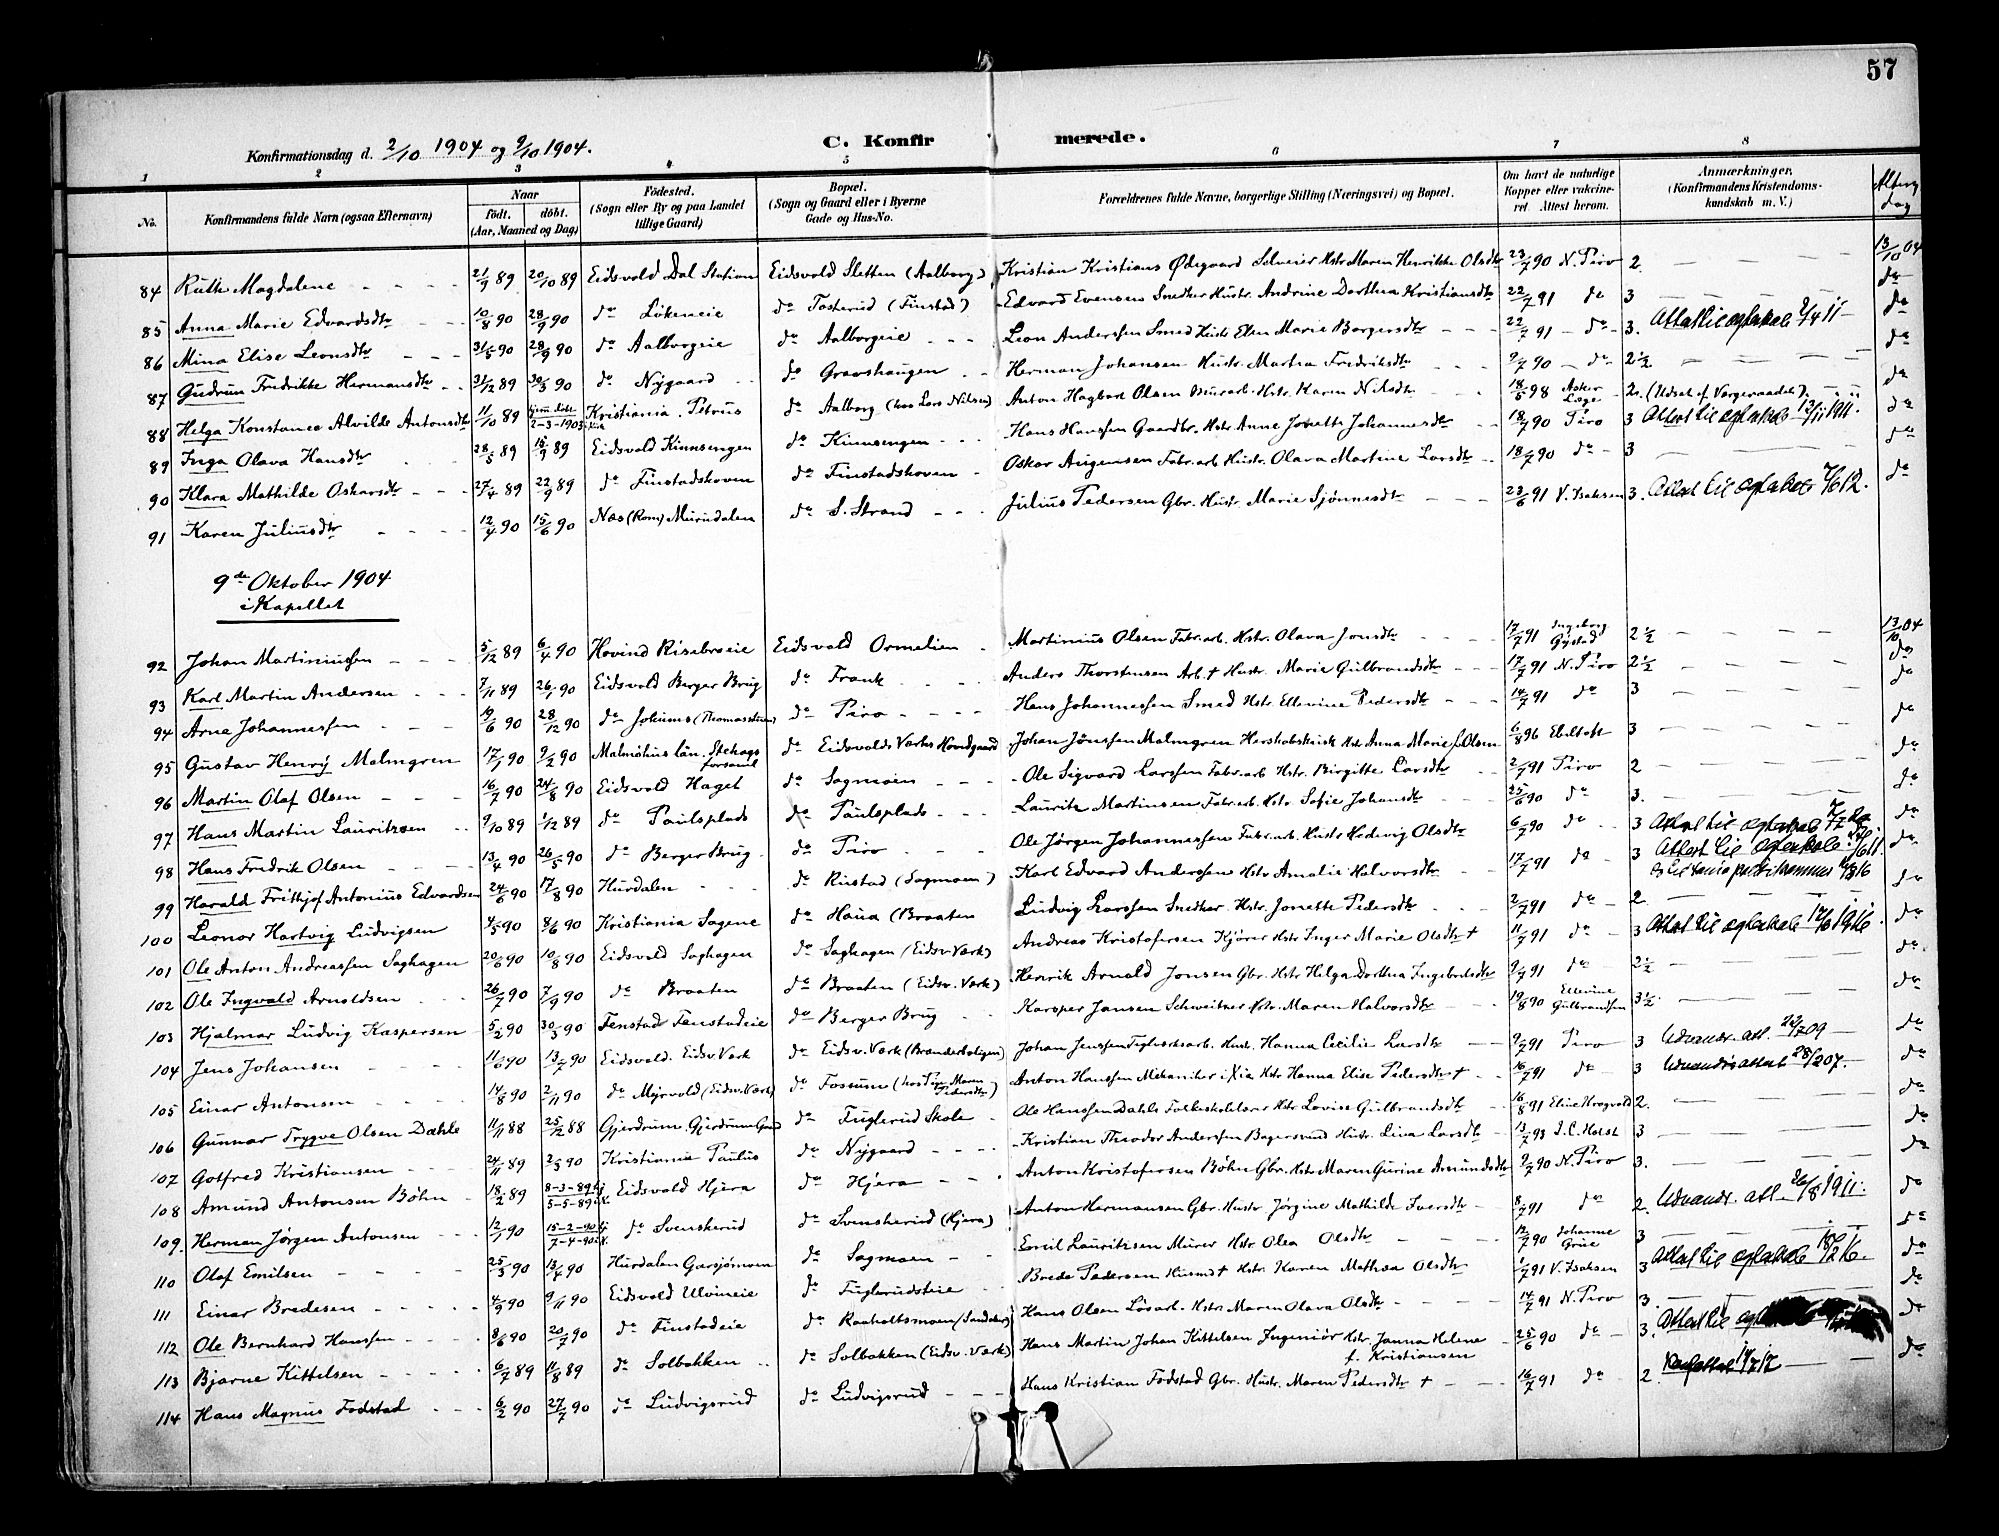 57
Konfirmationsdag d. 2/10 1904 og 9/10 1904.
C. Konfirmerede.
1 2 3 4 5 6 7 8
No. Konfirmandens fulde Navn (ogsaa Efternavn) Naar født. døbt. (Aar, Maaned og Dag) Fødested. (Sogn eller By og paa Landet tillige Gaard) Bopæl. (Sogn og Gaard eller i Byerne Gade og Hus-No.) Forældrenes fulde Navne, borgerlige Stilling (Næringsvei) og Bopæl. Om havt de naturlige Kopper eller vakcineret. Attest herom. Anmærkninger. (Konfirmandens Kristendomskundskab m. V.)
84 Ruth Magdalene 21/9 89 20/10 89 Eidsvold Dal Station Eidsvold Sletten (Aalborg) Kristian Kristians Ødegaard Hstr. Maren Henrikke Olsdtr 23/7 90 N. Piro 2. 13/10 04
85 Anna Marie Edvardsdtr 10/8 90 28/9 90 do Løkeneie do Tosterud (Finstad) Edvard Evensen Snedker Hustr. Andrine Dorthea Kristiansdtr 22/7 91 do 3 do
86 Mina Elise Leonsdtr 31/5 90 28/9 90 do Aalborgeie do Aalborgeie Leon Anderssen Smed Hustr Elen Marie Borgersdtr 22/7 91 do 3. do
87 Gudrun Fredrikke Hermansdtr 31/12 89 30/3 90 do Nygaard do Gravshaugen Herman Johansen Hustr. Martea Fredriksdtr 9/7 90 do 2½ do
88 Helga Konstance Alvilde Antonsdtr 11/10 89 2-3-1903 Kristiania. Petrus do Aalborg (hos Lars Nilsen) Anton Hagbart Olsen Murarb. Hstr. Karen Nilsdtr 18/5 98 Asker Læge 2. (Udsat af Vergeraadet) do
89 Inga Olava Hansdtr 28/5 89 15/9 89 Eidsvold Kinnsengen do Kinnsengen Hans Hanssen Gaardbr. Hstr. Anne Jonette Johannesdtr 18/7 90 Piro 3 do
90 Klara Mathilde Oskarsdtr 27/4 89 22/9 89 do Finstadskoven do Finstadskoven Oskar Augensen Fabr.arb Hustr. Olava Martine Larsdtr 18/7 90 do 3 do
91 Karen Juliusdtr 12/4 90 15/6 90 Næs (Rom.) Murudalen do S. Strand Julius Pedersen Gbr. Hustr. Marie Sjønnesdtr 23/6 91 V. Isaksen 3. do
9de Oktober 1904
i Kapellet
92 Johan Martiniussen 5/12 89 6/4 90 Hovind Risebroeie Eidsvold Ormelien Martinius Olsen Fabr.arb. Hstr. Olava Jonsdtr 17/7 91 Ingeborg Gystad 2½ 13/10 04
93 Karl Martin Andersen 7/11 89 26/1 90 Eidsvold Berger Brug do Frank Anders Thorstensen Arb. † Hustr. Marie Gulbrandsdtr 17/7 91 N. Piro 2½ do
94 Arne Johannessen 19/6 90 28/12 90 do (Thomasstuen) do Piro Hans Johannessen Smed Hstr. Ellevine Pedersdtr 14/7 91 do 3 do
95 Gustav Henry Malmgren 17/1 90 9/2 90 Malmöhus län. Stehags forsaml do Eidsvolds Værks Hovedgaard Johan Jönssen Malmgren Herskabskusk Hstr. Anna Marie f. Olsen 6/8 96 Ebeltoft 3 do
96 Martin Olaf Olsen 16/7 90 24/8 90 Eidsvold Haget do Sagmoen Ole Sigvard Larssen Fabr.arb Hstr. Birgitte Larsdtr 2/7 91 Piro 2 do
97 Hans Martin Lauritzsen 9/10 89 1/12 89 do Paulsplads do Paulsplads Lauritz Martinsen Fabr.arb. Hstr. Sofie Johansdtr 25/6 90 do 3. do
98 Hans Fredrik Olsen 13/4 90 26/5 90 do Berger Brug do Piro Ole Jørgen Johannessen Fabr.arb. Hustr Hedevig Olsdtr 6/7 90 do 3 do
99 Harald Frithjof Antonius Edvardsen 24/6 90 17/8 90 Hurdalen do Rustad (Sagmoen) Karl Edvard Anderssen Hstr. Amalie Halvorsdtr 17/7 91 do 3 do
100 Leonor Hartvig Ludvigsen 4/5 90 8/6 90 Kristiania Sagene do Haua (Braaten Ludvig Larssen Snedker. Hstr. Jonette Pedersdtr 2/7 91 do 2. do
101 Ole Anton Andreassen Saghagen 20/6 90 10/8 90 Eidsvold Saghagen do Saghagen (Eidsv. Værk) Andreas Kristofersen Kjører Hstr Inger Marie Olsdtr † 11/7 91 do 3 do
102 Ole Ingvald Arnoldsen 26/7 90 7/9 90 do Braaten do Braaten (Eidsv. Værk) Henrik Arnold Jonsen Gbr. Hstr. Helga Dorthea Ingebretsdtr 9/7 91 do 2½ do
103 Hjalmar Ludvig Kaspersen 5/2 90 30/3 90 Fenstad Fenstadeie do Berger Brug Kasper Jansen Schweitser Hstr. Maren Halvorsdtr 19/8 90 Ellevine Gulbrandsen 3½ do
104 Jens Johansen 11/6 90 13/7 90 Eidsvold. Eidsv. Værk do Eidsv. Værk (Brænderboligen) Johan Jenssen Teglværksarb. Hustr. Hanna Cecilie Larsdtr 9/7 91 Piro 3 Udvandr. att. 23/7 09 do
105 Einar Antonsen 14/8 90 2/11 90 do Myrvold (Eidsv. Værk) do Fossum (hos Pige Maren Pedersdtr) Anton Hanssen Mekaniker i Xia Hstr Hanna Elise Pedersdtr † 16/7 91 do 3 Udvandringsattest 28/2 07. do
106 Gunnar Trygve Olsen Dæhle 11/11 88 25/12 88 Gjerdrum. Gjerdrum Gaard do Fuglerud Skole Ole Hanssen Dæhle Folkeskolelærer Hstr Lovise Gulbrandsdtr 16/8 91 Eline Kragvold 2. do
107 Gotfred Kristiansen 24/11 89 2/3 90 Kristiania Paulus do Nygaard Kristian Theodor Anderssen Bagersvend Hustr. Lina Larsdtr 13/7 93 J. C. Holst 3 do
108 Amund Antonsen Bøhn 18/2 89 8-3-89 hj 5-5-89 i K. Eidsvold Hjera do Hjera Anton Kristofersen Bøhn Gbr. Hstr Maren Gurine Amundsdtr 9/7 90 N. Piro 3. do
109. Herman Jørgen Antonsen 12/1 90 15-2-90 hj 7-4-90 i K. do Svenskerud do Svenskerud (Hjera) Anton Hermansen Gbr. Hustr Jørgine Mathilde Iversdtr 8/7 91 do 2. Udvandr. att. 26/8 1911. do
110 Olaf Emilsen 25/3 90 13/4 90 Hurdalen Garsjømoen do Sagmoen Emil Lauritzsen Murer Hstr Olea Olsdtr 12/7 90 Johanne Grue 3 do
111 Einar Bredesen 4/9 90 9/11 90 Eidsvold Ulvineie do Fuglerudseie Brede Pedersen Husmd † Hstr Karen Mathea Olsdtr 1/7 91 V. Isaksen 3 do
112 Ole Bernhard Hanssen 8/6 90 20/7 90 do Finstadeie do Raaholtsmoen (Sandaker) Hans Olsen Løsarb. Hstr. Maren Olava Olsdtr 14/7 91 N. Piro 3. do
113 Bjarne Kittelsen 6/7 89 11/8 89 do Solbakken do Solbakken (Eidsv. Værk) Hans Martin Johan Kittelsen Ingeniør Hstr. Janna Helene f. Kristiansen 25/6 90 do 3. do
114 Hans Magnus Fodstad 6/2 90 27/7 90 do Ludvigsrud do Ludvigsrud Hans Kristian Fodstad Gbr. Hustr. Maren Pedersdtr † 16/7 91 do 2. do